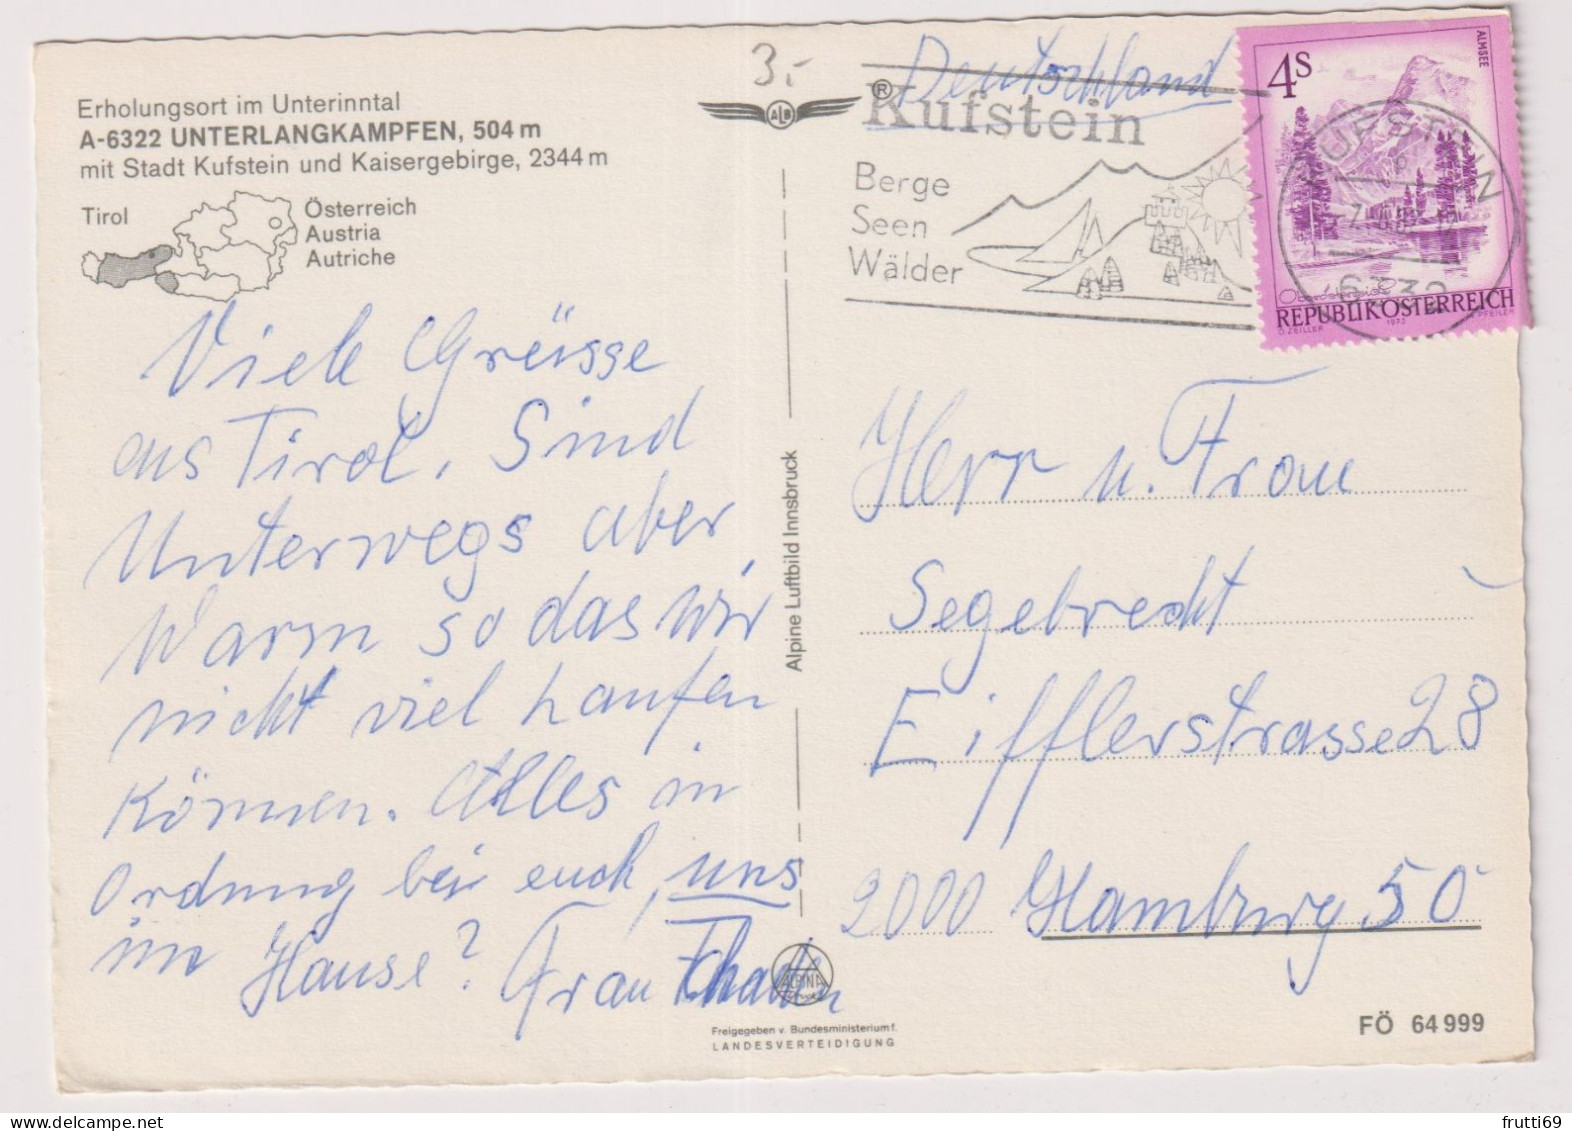 Erholungsort im Unterinntal
A-6322 UNTERLANGKAMPFEN, 504 m
mit Stadt Kufstein und Kaisergebirge, 2344 m
Tirol
Österreich
Austria
Autriche
Viele Grüsse
aus Tirol. Sind
Unterwegs aber
Warm so das wir
nicht viel laufen
können. Alles in
Ordnung bei euch, uns
im Hause? Frau
3.-
ALB
Alpine Luftbild Innsbruck
ALPINA
Freigegeben v. Bundesministerium f.
LANDESVERTEIDIGUNG
Deutschland
® Kufstein
Berge
Seen
Wälder
4S
ALMSEE
KUFSTEIN
6332
Oberösterreich
REPUBLIK ÖSTERREICH
O. ZEILLER 1973 PFEILER
Herr u. Frau
Segebrecht
Eifflerstrasse 28
2000 Hamburg 50
FÖ 64 999
frutti69